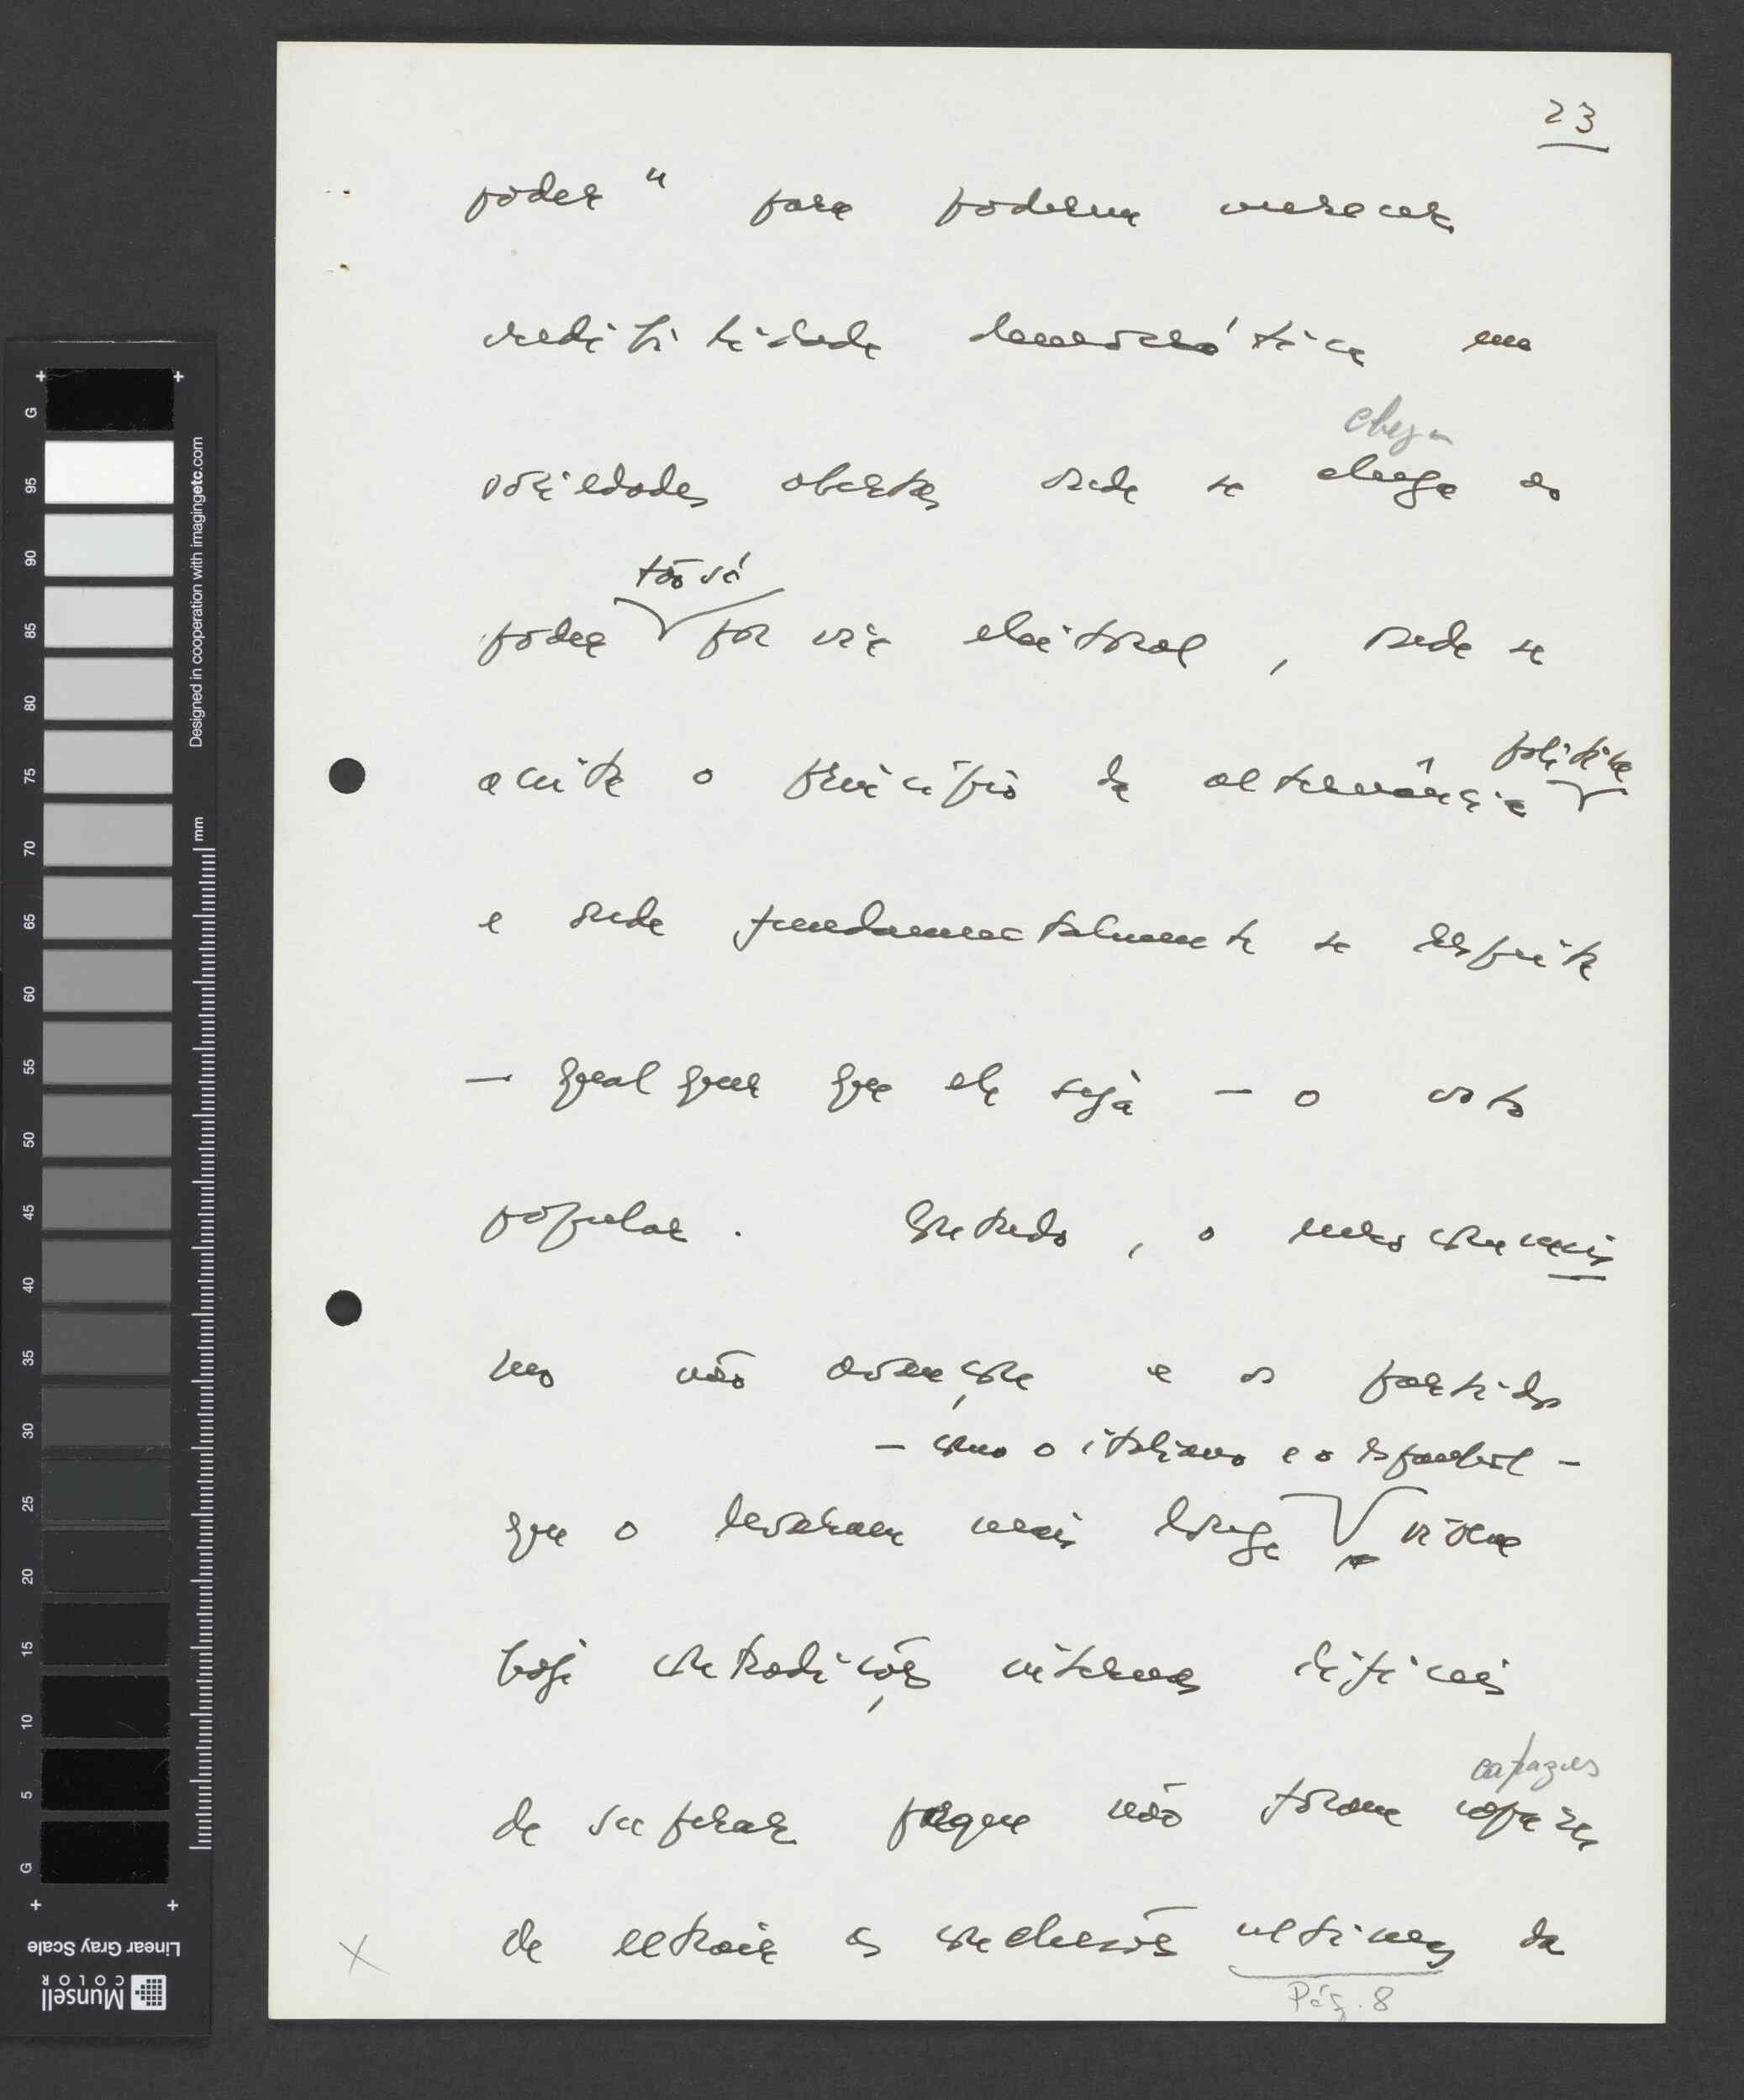 23
poder" para poderem merecer
credibilidade democrática nas
chega
sociedades abertas onde se chega ao
tão só
poder por via eleitoral, onde se
política
aceita o princípio da alternância
e onde fundamentalmente se respeita
— qualquer que ele seja — o voto
popular. Contudo, o eurocomunis
mo não avançou e os partidos
— como o italiano e o espanhol —
que o levaram mais longe vivem
hoje contradições internas difíceis
capazes
de superar porque não foram capazes
de extrair as conclusões últimas da
Pág. 8
X
Designed in cooperation with imagingetc.com
mm
G 95 90 85 80 75 70 65 60 55 50 45 40 35 30 25 20 15 10 5 G
Linear Gray Scale
Munsell
COLOR